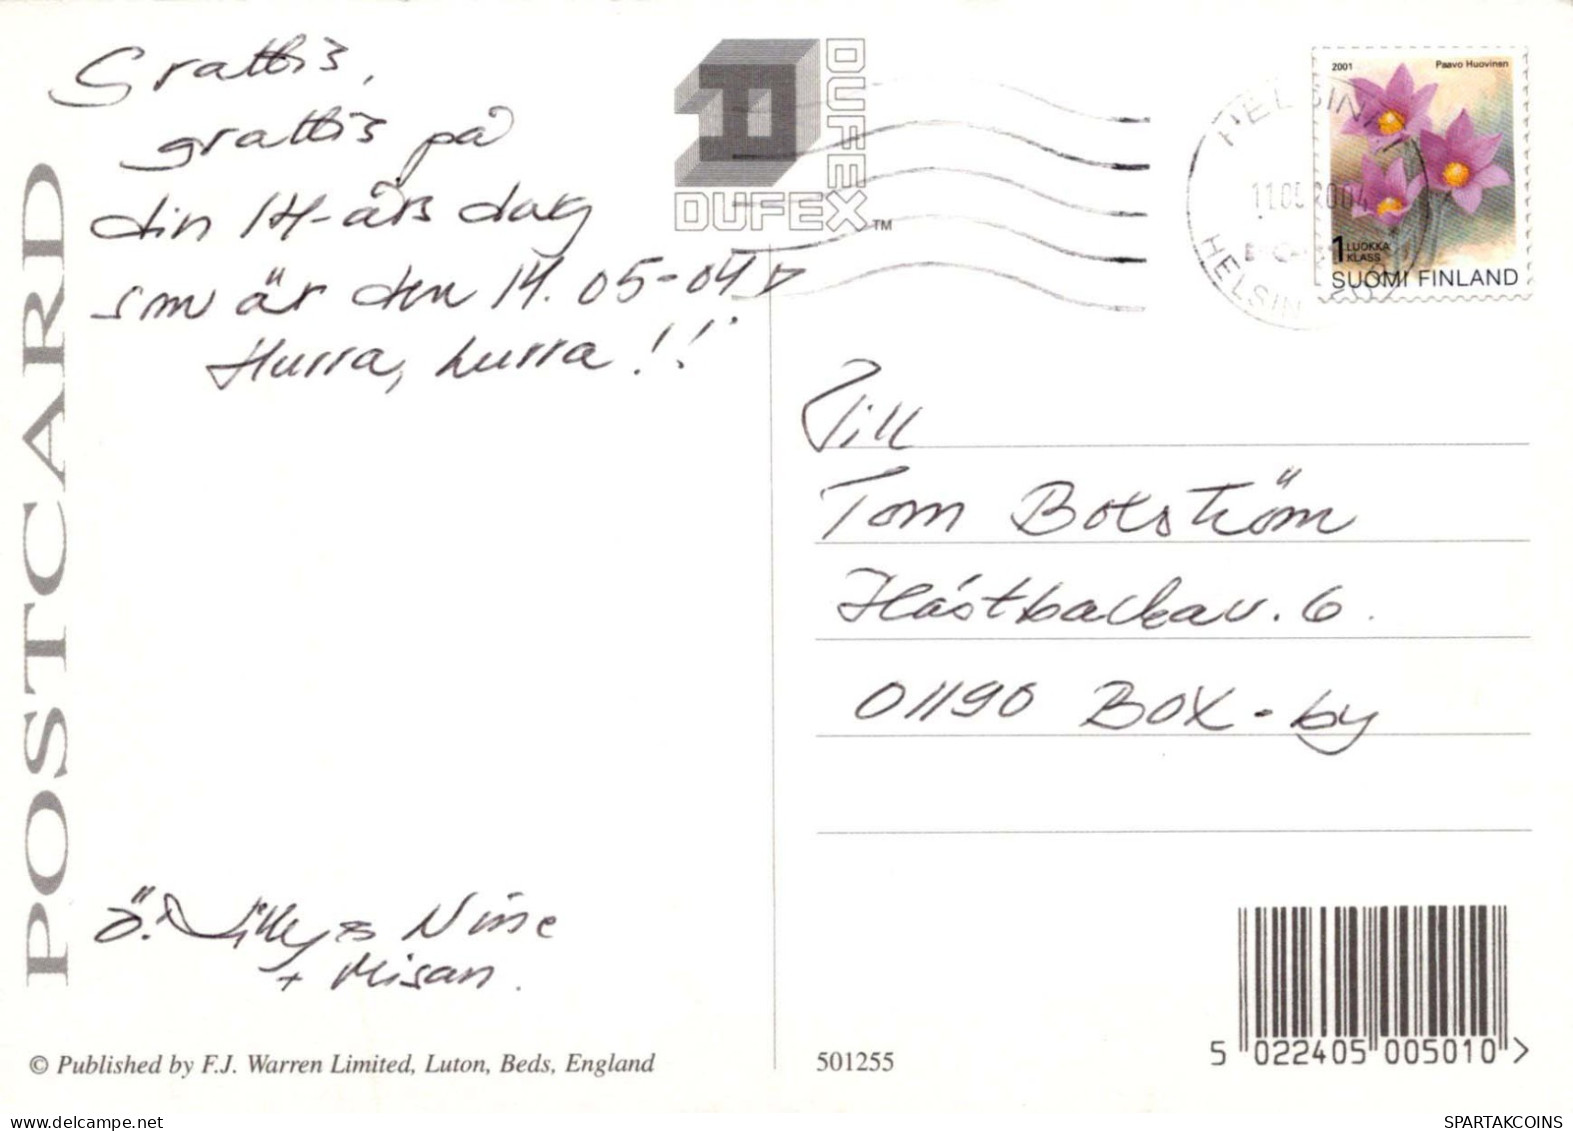 Grattis,
grattis på
din 14-års dag
som är den 14.05-04
Hurra, hurra!!
Ö. Lilly & Nisse
+ Misan.
POSTCARD
© Published by F.J. Warren Limited, Luton, Beds, England
DUFEX
DUFEX™
HELSINKI
11.05.2004
HELSIN
2001
Paavo Huovinen
1 LUOKKA
KLASS
SUOMI FINLAND
Till
Tom Boström
Hästbackav. 6.
01190 BOX-by
501255
5 022405 005010 >
SPARTAKCOINS